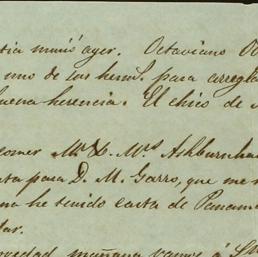 murió ayer. Octaviano
uno de los herm.s para arregla
buena herencia. El chico de
comer Mr. & Mrs Ashburnha
para D. M. Garro, que me
ha tenido carta de Panam
dar.
mañana vamos á